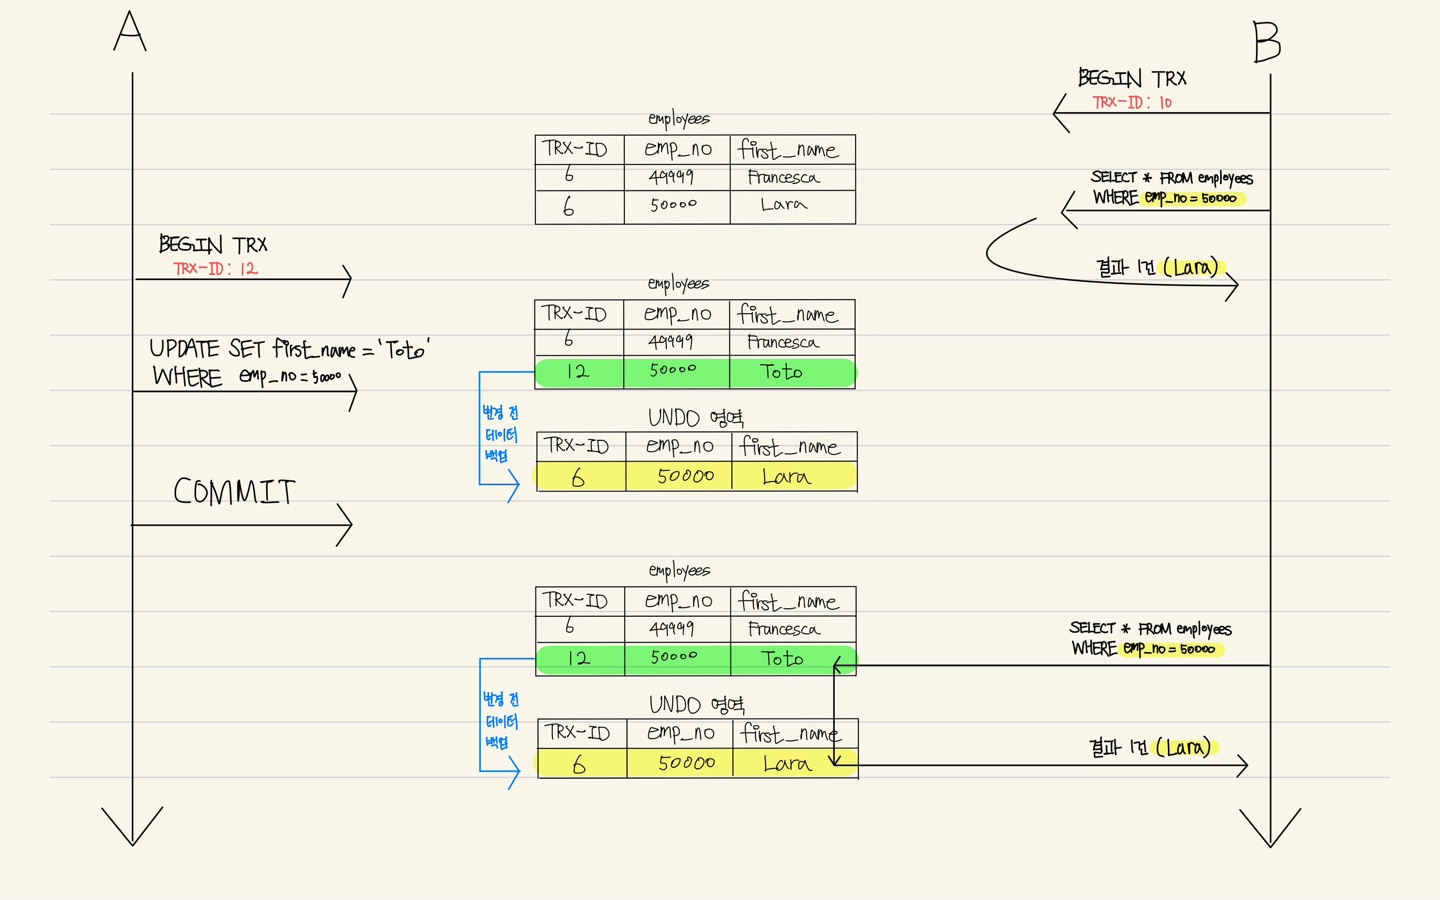 A
B
BEGIN TRX
TRX-ID: 10
employees
TRX-ID emp_no first_name
6 49999 Francesca
6 50000 Lara
SELECT * FROM employees
WHERE emp_no = 50000
결과 1건 (Lara)
BEGIN TRX
TRX-ID: 12
employees
TRX-ID emp_no first_name
6 49999 Francesca
12 50000 Toto
UPDATE SET first_name = 'Toto'
WHERE emp_no = 50000
변경 전
데이터
백업
UNDO 영역
TRX-ID emp_no first_name
6 50000 Lara
COMMIT
employees
TRX-ID emp_no first_name
6 49999 Francesca
12 50000 Toto
SELECT * FROM employees
WHERE emp_no = 50000
변경 전
데이터
백업
UNDO 영역
TRX-ID emp_no first_name
6 50000 Lara
결과 1건 (Lara)